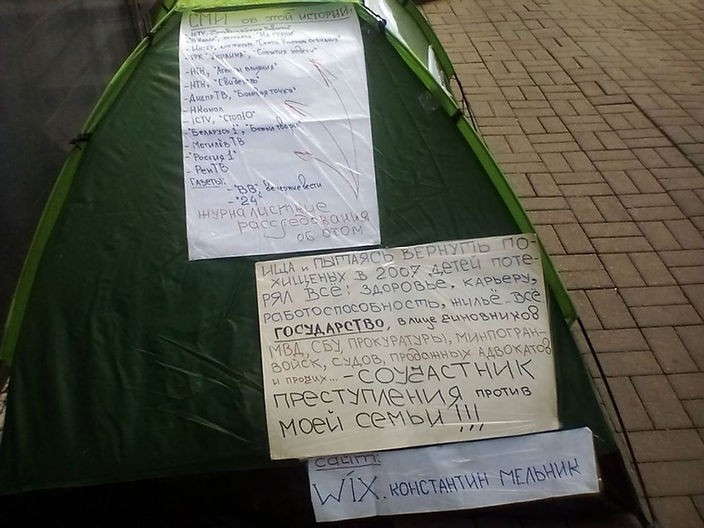 СМИ ОБ ЭТОЙ ИСТОРИИ:
- ICTV,
"На грани"
- Интер,
- ТРК "Украина", "События недели"
- НТН, "Агенты влияния"
- НТН, "Свидетель"
- ДнепрТВ, "Болевая точка"
- НКанал
- ICTV, "Стоп10"
- "Беларусь 1",
- Могилёв ТВ
- "Россия 1"
- РенТВ
Газеты:
- "ВВ", Вечерние вести
- "24"
ЖУРНАЛИСТКИЕ
РАССЛЕДОВАНИЯ
ОБ ЭТОМ
ИЩА И ПЫТАЯСЬ ВЕРНУТЬ ПО-
ХИЩЕНЫХ В 2007 ДЕТЕЙ ПОТЕ-
РЯЛ ВСЁ: ЗДОРОВЬЕ, КАРЬЕРУ,
РАБОТОСПОСОБНОСТЬ, ЖИЛЬЁ-ВСЁ
ГОСУДАРСТВО, В ЛИЦЕ ЧИНОВНИКОВ
МВД, СБУ, ПРОКУРАТУРЫ, МИНПОГРАН-
ВОЙСК, СУДОВ, ПРОДАННЫХ АДВОКАТОВ
И ПРОЧИХ... - СОУЧАСТНИК
ПРЕСТУПЛЕНИЯ ПРОТИВ
МОЕЙ СЕМЬИ!!!
САЙТ:
WIX. КОНСТАНТИН МЕЛЬНИК